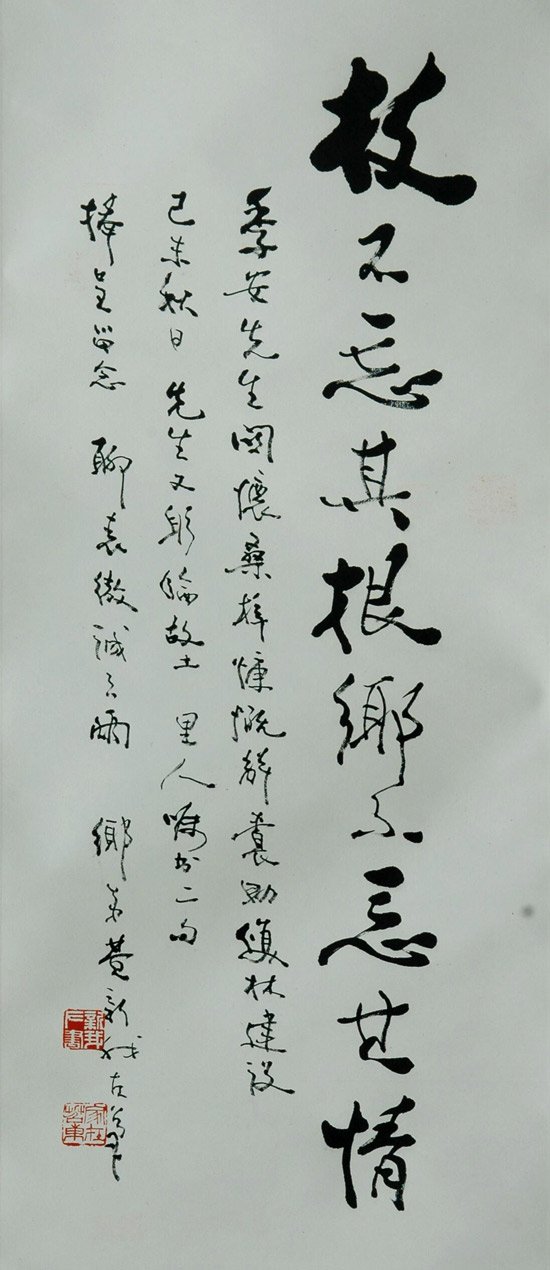 枝不忘其根鄉不忘其情
季安先生関懷桑梓慷慨解囊助復林建設
己未秋日 先生又躬臨故土 里人嘱书二句
捧呈留念 聊表微誠之爾 鄉弟費新我左筆
新我左書